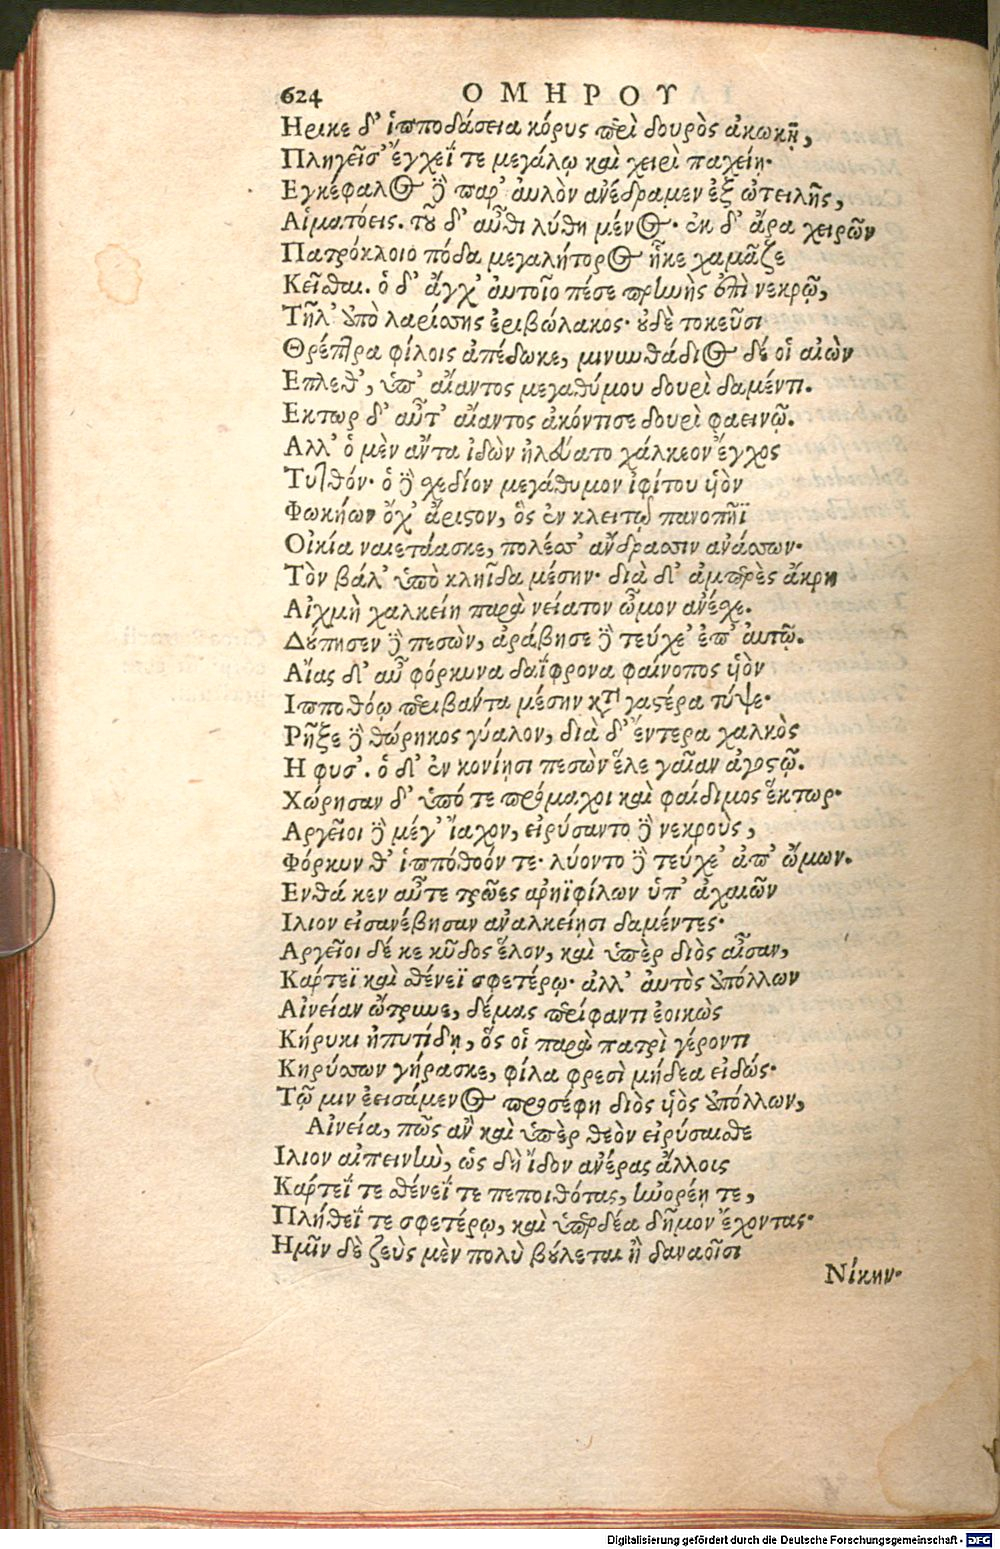 624 ΟΜΗΡΟΥ
Ηρικε δ' ἱπποδάσεια κόρυς περὶ δουρὸς ἀκωκῇ,
Πληγεῖσ' ἔγχεΐ τε μεγάλῳ καὶ χειρὶ παχείῃ·
Εγκέφαλος δὲ παρ' ἀυλὸν ἀνέδραμεν ἐξ ὠτειλῆς,
Αἱματόεις. τοῦ δ' αὖθι λύθη μένος· ἐκ δ' ἄρα χειρῶν
Πατρόκλοιο πόδα μεγαλήτορος ἧκε χαμᾶζε
Κεῖσθαι. ὁ δ' ἄγχ' ἀυτοῖο πέσε πρηνὴς ἐπὶ νεκρῷ,
Τῆλ' ἀπὸ λαρίσσης ἐριβώλακος· οὐδὲ τοκεῦσι
Θρέπτρα φίλοις ἀπέδωκε, μινυνθάδιος δέ οἱ αἰὼν
Επλεθ', ὑπ' αἴαντος μεγαθύμου δουρὶ δαμέντι.
Εκτωρ δ' αὖτ' αἴαντος ἀκόντισε δουρὶ φαεινῷ.
Αλλ' ὁ μὲν ἄντα ἰδὼν ἠλεύατο χάλκεον ἔγχος
Τυτθόν· ὁ δὲ σχεδίον μεγάθυμον ἰφίτου υἱὸν
Φωκήων ὄχ' ἄριστον, ὃς ἐν κλειτῷ πανοπῆϊ
Οἰκία ναιετάασκε, πολέσσ' ἄνδρασσιν ἀνάσσων·
Τὸν βάλ' ὑπὸ κληῖδα μέσην· διὰ δ' ἀμπερὲς ἄκρη
Αἰχμὴ χαλκείη παρὰ νείατον ὦμον ἀνέσχε.
Δούπησεν δὲ πεσὼν, ἀράβησε δὲ τεύχε' ἐπ' ἀυτῷ.
Αἴας δ' αὖ φόρκυνα δαΐφρονα φαίνοπος υἱὸν
Ιπποθόῳ περιβάντα μέσην κατὰ γαστέρα τύψε·
Ρῆξε δὲ θώρηκος γύαλον, διὰ δ' ἔντερα χαλκὸς
Η φυσ'. ὁ δ' ἐν κονίῃσι πεσὼν ἕλε γαῖαν ἀγοστῷ.
Χώρησαν δ' ὑπό τε πρόμαχοι καὶ φαίδιμος ἕκτωρ·
Αργεῖοι δὲ μέγ' ἴαχον, εἰρύσαντο δὲ νεκροὺς,
Φόρκυν θ' ἱππόθοόν τε· λύοντο δὲ τεύχε' ἀπ' ὤμων.
Ενθά κεν αὖτε τρῶες ἀρηϊφίλων ὑπ' ἀχαιῶν
Ιλιον εἰσανέβησαν ἀναλκείῃσι δαμέντες·
Αργεῖοι δέ κε κῦδος ἕλον, καὶ ὑπὲρ διὸς αἶσαν,
Κάρτεϊ καὶ σθένεϊ σφετέρῳ· ἀλλ' ἀυτὸς ἀπόλλων
Αἰνείαν ὤτρυνε, δέμας περίφαντι ἐοικὼς
Κήρυκι ἠπυτίδῃ, ὅς οἱ παρὰ πατρὶ γέροντι
Κηρύσσων γήρασκε, φίλα φρεσὶ μήδεα εἰδώς·
Τῷ μιν ἐεισάμενος προσέφη διὸς υἱὸς ἀπόλλων,
Αἰνεία, πῶς ἂν καὶ ὑπὲρ θεὸν εἰρύσαισθε
Ιλιον αἰπεινὴν, ὡς δὴ ἴδον ἀνέρας ἄλλοις
Κάρτεΐ τε σθένεΐ τε πεποιθότας, ἠνορέῃ τε,
Πλήθεΐ τε σφετέρῳ, καὶ ὑπερδέα δῆμον ἔχοντας·
Ημῖν δὲ ζεὺς μὲν πολὺ βούλεται ἢ δαναοῖσι
Νίκην·
Digitalisierung gefördert durch die Deutsche Forschungsgemeinschaft - DFG